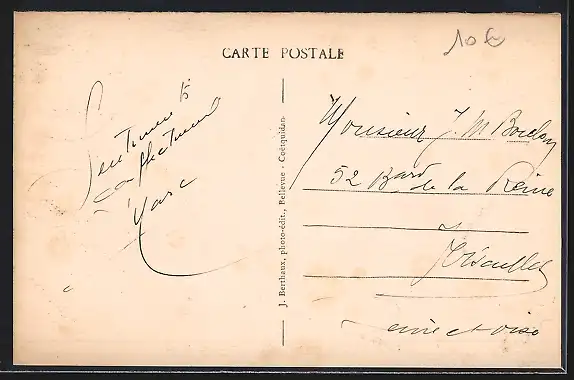 CARTE POSTALE
10 €
Sentiments
affectueux
Marc
J. Berthaux, photo-édit., Bellevue - Coëtquidan.
Monsieur J. M
52 Bard de la Reine
Versailles
Seine et Oise